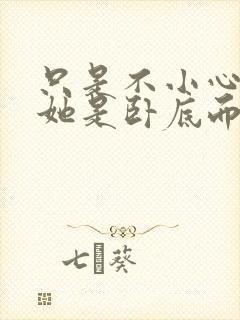 只是不小心
她是卧底而
七葵